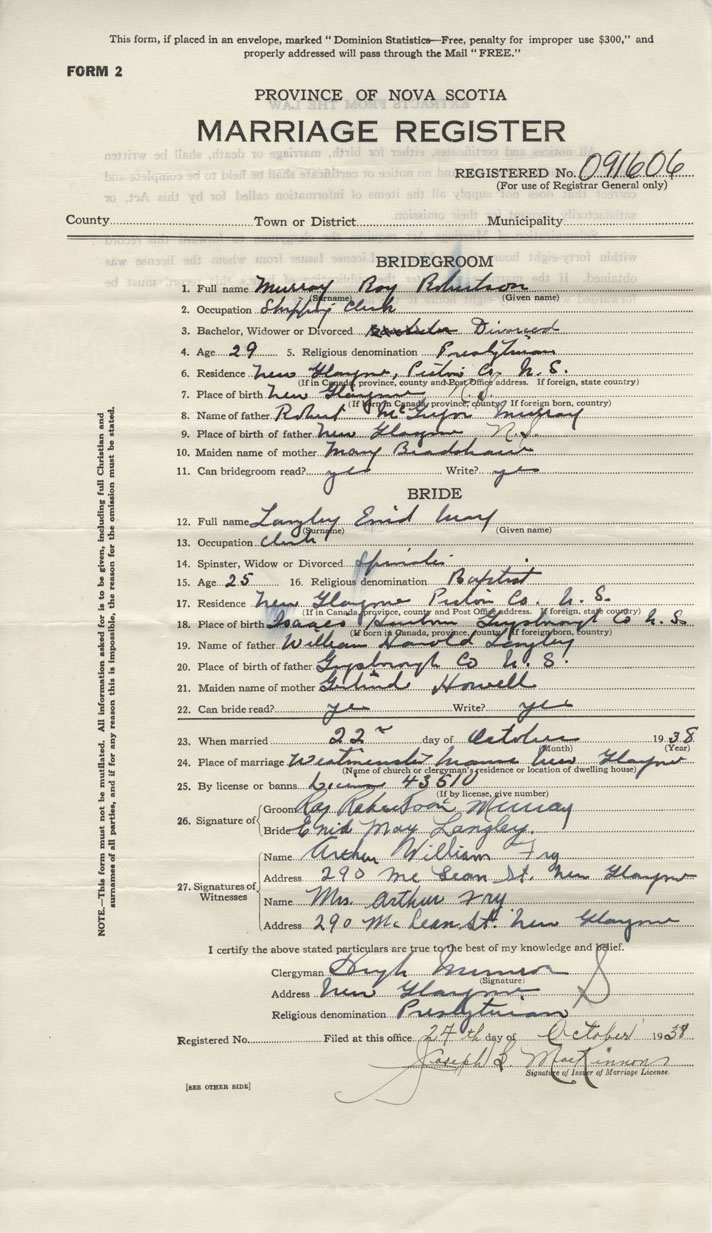 This form, if placed in an envelope, marked "Dominion Statistics—Free, penalty for improper use $300," and
properly addressed will pass through the Mail "FREE."
FORM 2
PROVINCE OF NOVA SCOTIA
MARRIAGE REGISTER
REGISTERED No. 091606
(For use of Registrar General only)
County Town or District Municipality
BRIDEGROOM
1. Full name Murray Roy Robertson
(Surname) (Given name)
2. Occupation Shipping Clerk
3. Bachelor, Widower or Divorced Divorced
4. Age 29 5. Religious denomination Presbyterian
6. Residence New Glasgow, Pictou Co. N.S.
(If in Canada, province, county and Post Office address. If foreign, state country)
7. Place of birth New Glasgow N.S.
(If born in Canada, province, county? If foreign born, country)
8. Name of father Robert McGregor Murray
9. Place of birth of father New Glasgow N.S.
10. Maiden name of mother Mary Bradshaw
11. Can bridegroom read? yes Write? yes
BRIDE
12. Full name Langley Enid May
(Surname) (Given name)
13. Occupation Clerk
14. Spinster, Widow or Divorced Spinster
15. Age 25 16. Religious denomination Baptist
17. Residence New Glasgow Pictou Co. N.S.
(If in Canada, province, county and Post Office address. If foreign, state country)
18. Place of birth Isaacs Harbour Guysborough Co N.S
(If born in Canada, province, county? If foreign born, country)
19. Name of father William Harold Langley
20. Place of birth of father Guysborough Co N.S.
21. Maiden name of mother Howell
22. Can bride read? yes Write? yes
23. When married 22nd day of October 1938
(Month) (Year)
24. Place of marriage Westminster Manse New Glasgow
(Name of church or clergyman's residence or location of dwelling house)
25. By license or banns License 43510
(If by license, give number)
26. Signature of Groom Roy Robertson Murray
Bride Enid May Langley.
27. Signatures of Witnesses
Name Arthur William Fry
Address 290 McLean St. New Glasgow
Name Mrs. Arthur Fry
Address 290 McLean St. New Glasgow
I certify the above stated particulars are true to the best of my knowledge and belief.
Clergyman Hugh Munroe
(Signature)
Address New Glasgow
Religious denomination Presbyterian
Registered No. Filed at this office 24th day of October 1938
Joseph S. MacKinnon
Signature of Issuer of Marriage License.
[SEE OTHER SIDE]
NOTE.—This form must not be mutilated. All information asked for is to be given, including full Christian and
surnames of all parties, and if for any reason this is impossible, the reason for the omission must be stated.